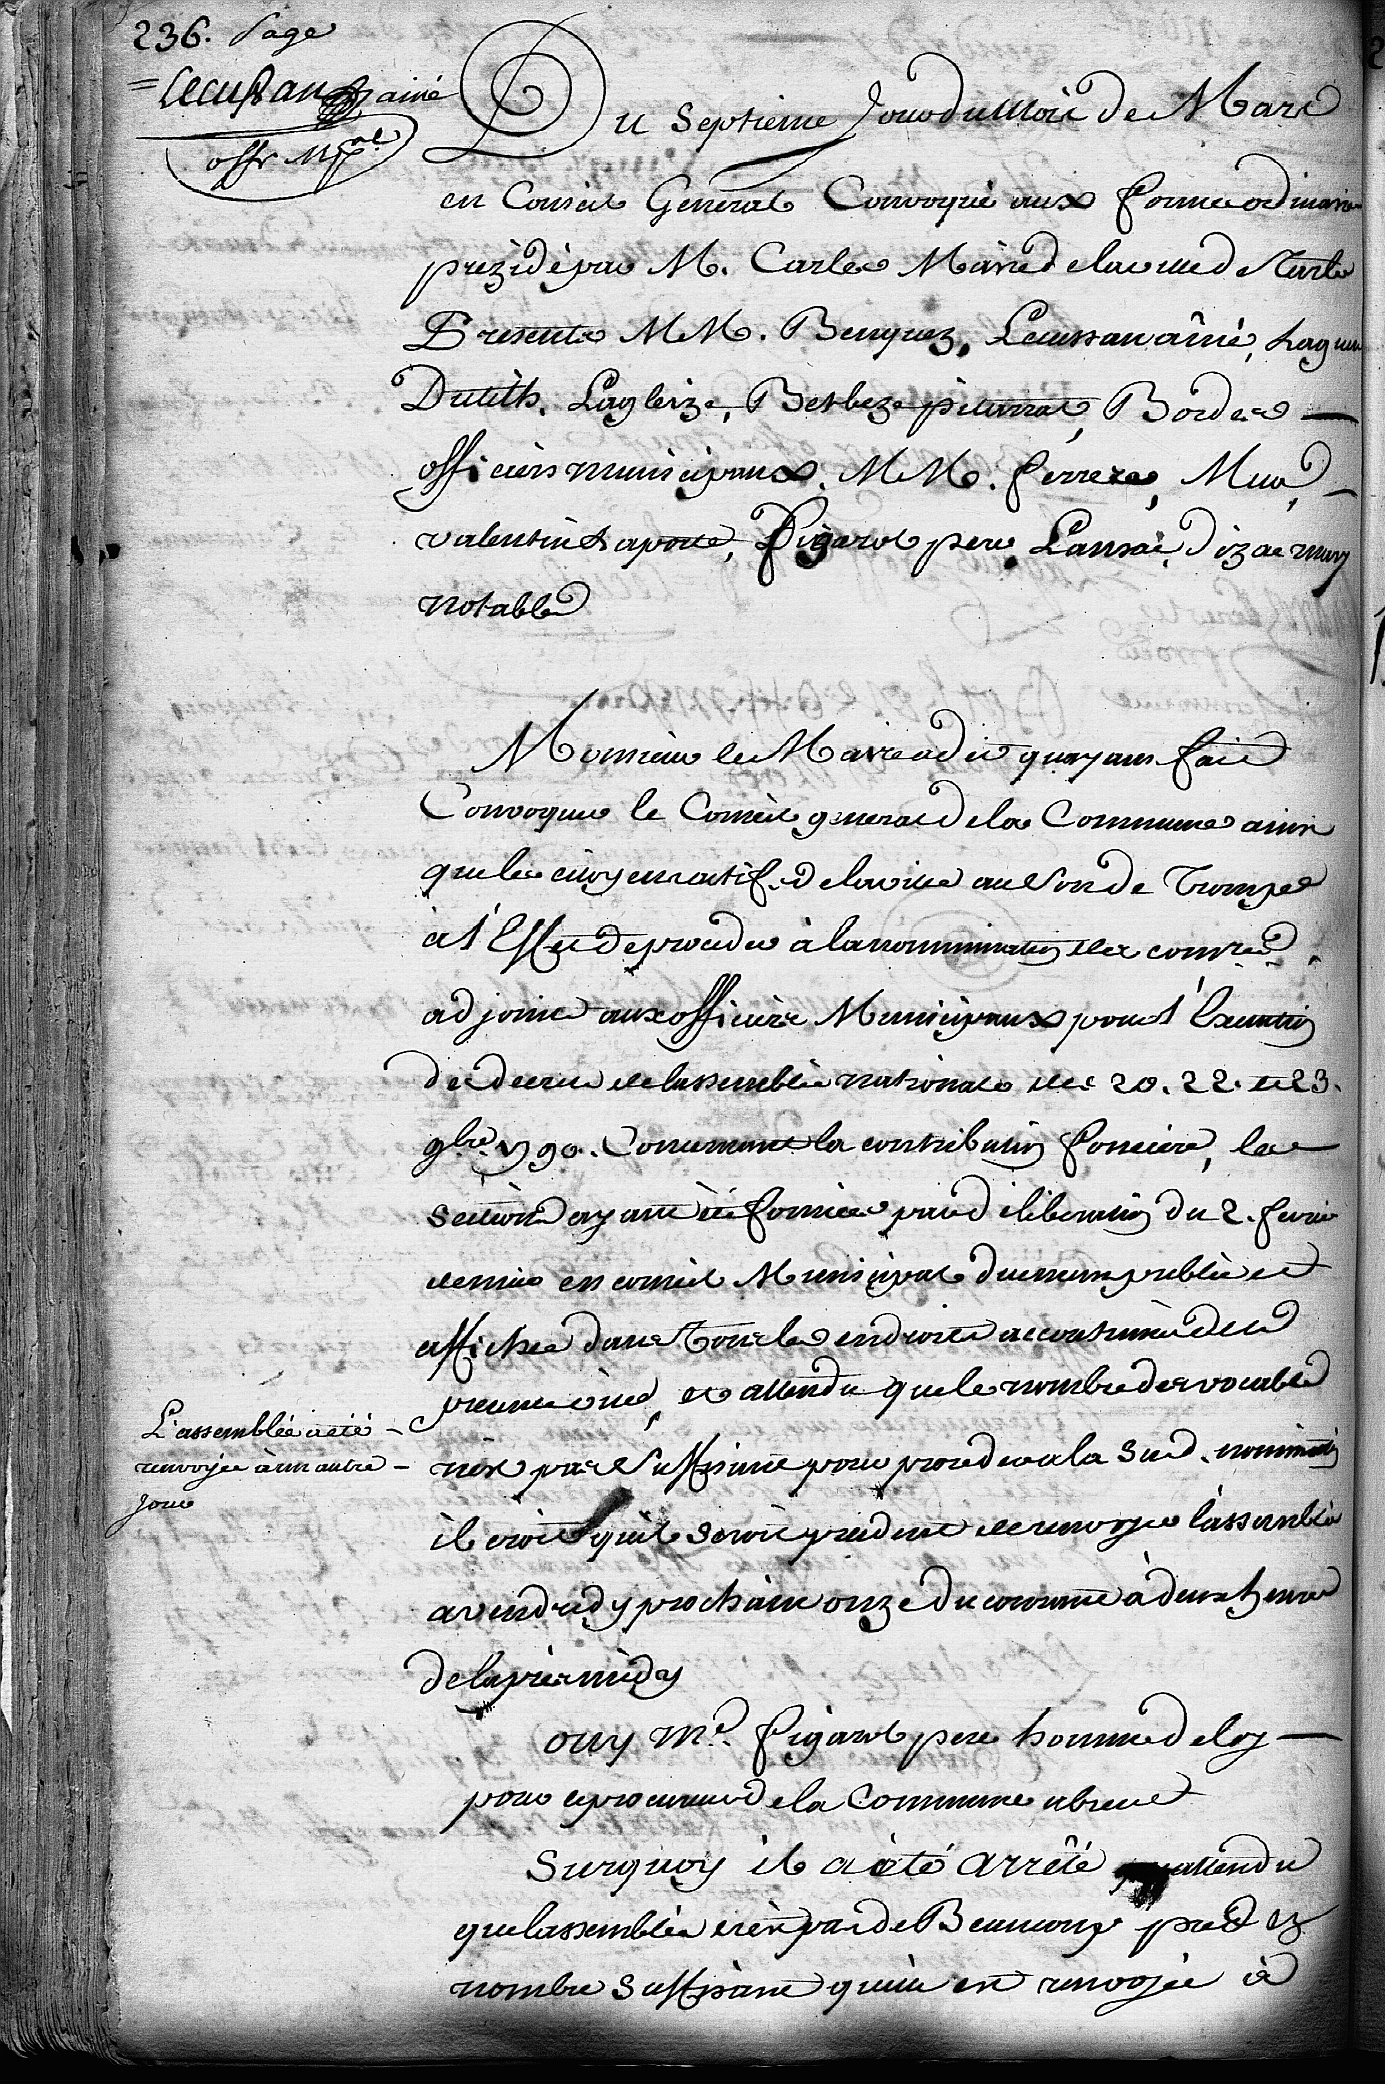 236. Page
Lecussan ainé
offr Mpal
Du Septieme Jour du Mois de Mars
en Conseil General Convoqué aux formes ordinaires
prézidé par M. Carles Maire de la ville de Tarbes
Presents MM. Benquez, Lecussan ainé, Lagues
Dutith, Lagleize, Betbeze Bordes
officiers municipaux. MM. ferrere,
valentin Laporte, Figarol pere, Lansac, dizac
notables
Monsieur le Maire a dit qu'ayant fait
Convoquer le Conseil general de la Commune ainsi
que les citoyens actifs de la ville au Son de Trompe
à l'Effet de proceder à la nommination des comres
adjoints aux officiers Municipaux pour l'Execution
des decrets de lassemblée nationale des 20. 22. et 23.
9bre 1790. Concernant la contribution fonciere, les
sections ayant été formées par deliberation du 2. fevrier
dernier en conseil Municipal duement publiée et
affichée dans tous les endroits accoutumés de la
presente ville, et attendu que le nombre des vocables
n'est pas Suffisant pour proceder a la Susd. nomination
il croit qu'il seroit prudent de renvoyer l'assemblée
a vendredy prochain onze du courant à deux heures
de laprès midy
L'assemblée a été
renvoyée à un autre
Jour
ouy Mr. Figarol pere homme de loy
pour le procureur de la Commune absent
Surquoy il a été arrêté attendu
que lassemblée n'est pas de Beaucoup près en
nombre Suffisant qu'elle est renvoyée à